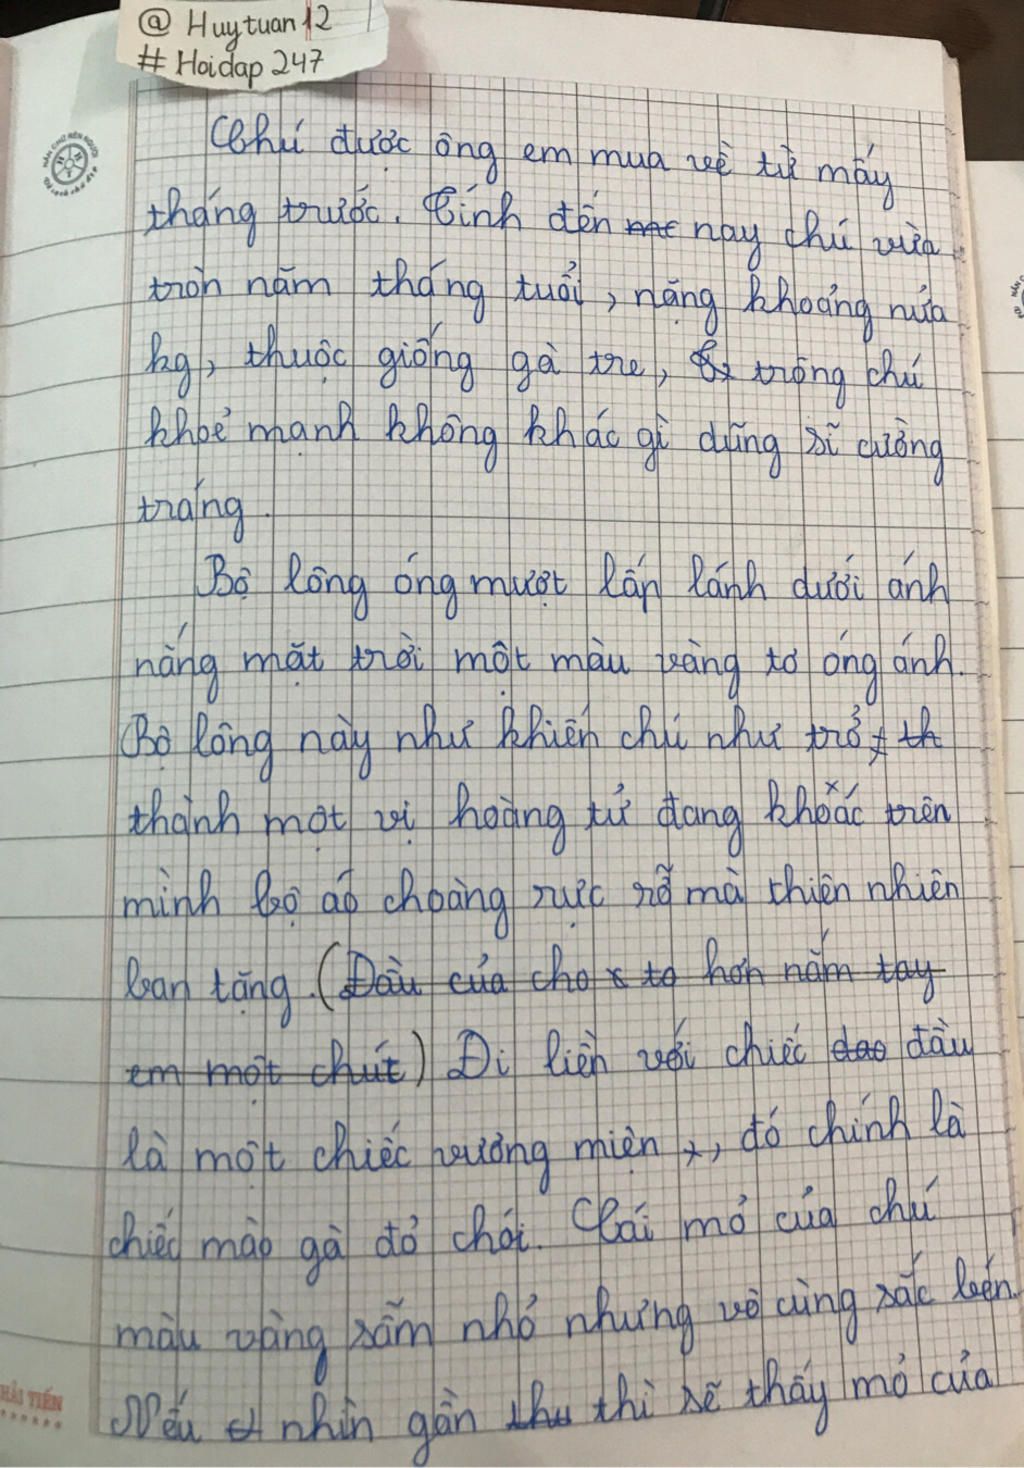 @ Huytuan12
# Hoidap 247
Chú được ông em mua về từ mấy
tháng trước. Tính đến nay chú vừa
tròn năm tháng tuổi, nặng khoảng nửa
kg, thuộc giống gà tre, trông chú
khoẻ mạnh không khác gì dũng sĩ cường
tráng.
Bộ lông óng mượt lấp lánh dưới ánh
nắng mặt trời một màu vàng tơ óng ánh.
Bộ lông này như khiến chú như trở th
thành một vị hoàng tử đang khoác trên
mình bộ áo choàng rực rỡ mà thiên nhiên
ban tặng. (Đầu của cho to hơn nắm tay
em một chút) Đi liền với chiếc đao đầu
là một chiếc vương miện, đó chính là
chiếc mào gà đỏ chói. Cái mỏ của chú
màu vàng sẫm nhỏ nhưng vô cùng sắc bén.
Nếu nhìn gần thu thì sẽ thấy mỏ của
HẢI TIẾN